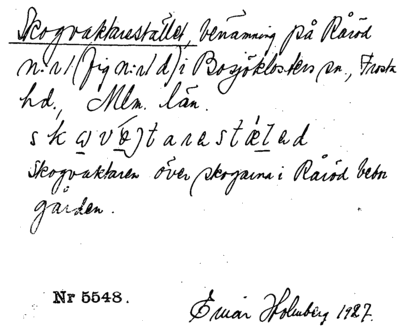 Skogvaktarestället, benämning på Råröd
n:r 1 (fig n:r 1 d) i Bosjöklosters sn., Frosta
hd., Mlm. län.
skogvaktaren över skogarna i Råröd bebor
gården.
Nr 5548.
Einar Holmberg 1927.